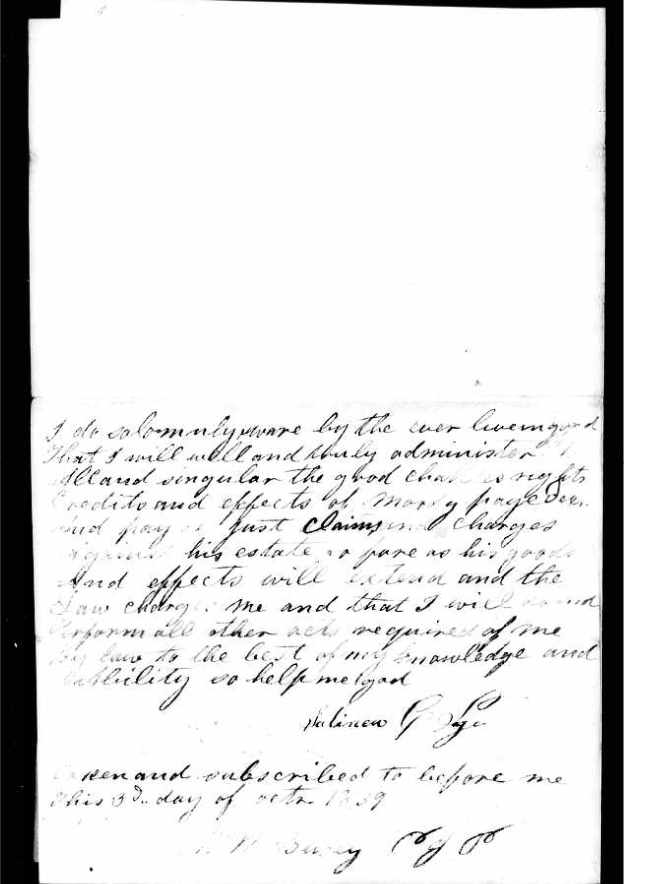 I do solomnly sware by the ever liveing god
That I will well and truly administer
All and singular the good chattles rights
Credits and effects of page Decs.
and pay just claims and charges
against his estate so fare as his goods
And effects will extend and the
Law charge me and that I will
Perform all other acts required of me
By law to the best of my knowledge and
abbility so help me god
G
and subscribed to before me
This 3d. day of octr. 1859
W Busey